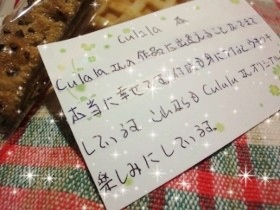 Culala 様
Culala さんの作品に出逢えることができて
本当に幸せです。何度も身につけてうきうき
しています これからも Culala さんの
楽しみにしています。